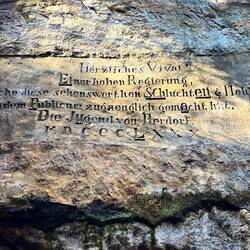 Herzliches Vivat!
Einer hohen Regierung,
che diese sehenswerthen Schluchten & Hohl
dem Publicum zugaenglich gemacht hat.
Die Jugend von Berdorf.
MDCCCLXXX